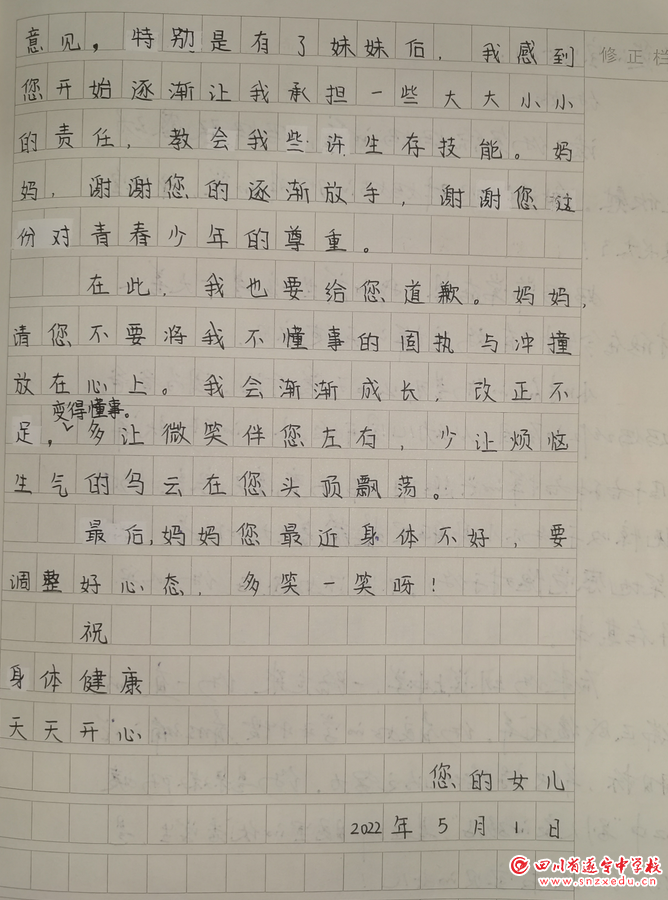 意见，特别是有了妹妹后，我感到
修正栏
您开始逐渐让我承担一些大大小小
的责任，教会我些许生存技能。妈
妈，谢谢您的逐渐放手，谢谢您这
份对青春少年的尊重。
在此，我也要给您道歉。妈妈，
请您不要将我不懂事的固执与冲撞
放在心上。我会渐渐成长，改正不
变得懂事。
足，多让微笑伴您左右，少让烦恼
生气的乌云在您头顶飘荡。
最后，妈妈您最近身体不好，要
调整好心态，多笑一笑呀！
祝
身体健康
天天开心
您的女儿
2022年5月1日
四川省遂宁中学校
www.snzxedu.cn